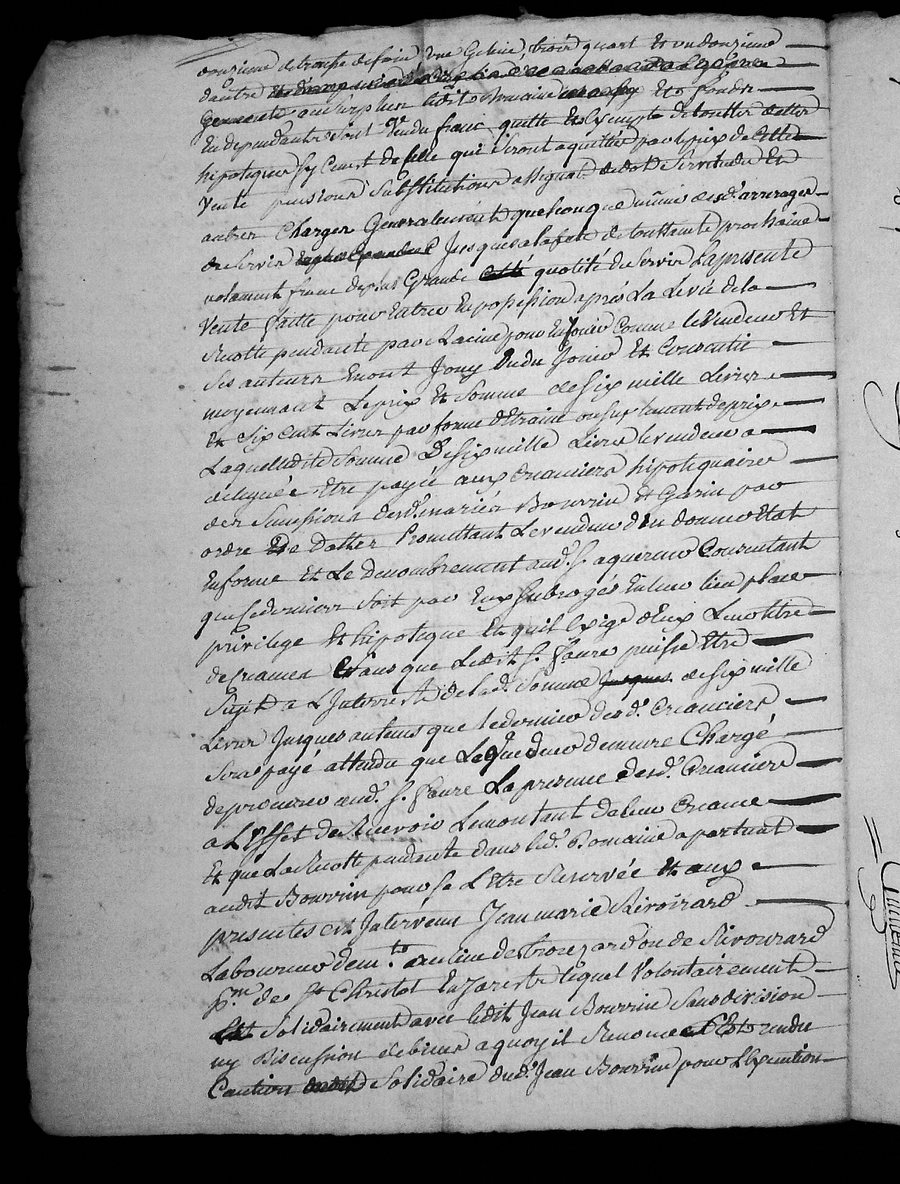 onzieme de troupe de foin une Geline, trois quart Et un donzieme
dautre
Generale au surplus ledit Domaine Et fondr
Independants dont vendu franc quitte Et Exempte de touttes dettes
hipoteques sy Ceuest de selle qui seront aquittés par le prix de Cette
Vente pensions Substitutions assignat de dot Servitudes Et
autres Charges Generalement quelconque même desd. arrerages
de servis Jusques a la fete de toutteints prochaine
notament franc de plus Grande quotité de servis La presente
Vente faitte pour Entrer En popession après La Levée de la
Recotte pendante par Racine pour En Jouir Comme le vendeur Et
Ses auteurs En ont Jouy Ou du Jouir Et Consentie
moyennant Le prix Et Somme de Six mille Livres
Et Six Cent Livres par forme d'Etraine ou suplement de prix
Laquelle dite Somme De six mille Livres le vendeur a
deleguée Etre payée aux Creanciers hipotequaires
des Suucssions desd. mariés Bourrin Et Garin par
ordre De Dattes Promettant Le vendeur d'En donner Etat
En forme Et Le Denombrement aud. s. aquereur Consentant
que Ce dernier soit par Eux Subrogés En leur lieu place
privilege Et hipoteque Et quil Exige d'Eux Leur titre
de Creances sans que Ledit s. faure puisse Etre
Sujet a L'Interrest de lad. Somme de six mille
Livres Jusques autems que le dernier desd. Creanciers
Sera payé attendu que Le vendeur demeure Chargé
de procurer aud. s. faure La presence desd. Creanciers
a L'Effet de Recevoir Le montant de leur Creance
Et que La Recotte pendante dans led. Domaine apartient
audit Bourrin pour se L'Etre Reservée Et aux
presentes est Intervenu Jean marie Rivoirard
Laboureur dem.t au lieu de ou de Rivourard
p.sse de s.t Christot En Jarest lequel Volontairement
Solidairement avec ledit Jean Bourrin Sans division
ny Discussion de biens a quoy il Renonce s'Est rendu
Caution Solidaire dud. Jean Bourrin pour L'Execution